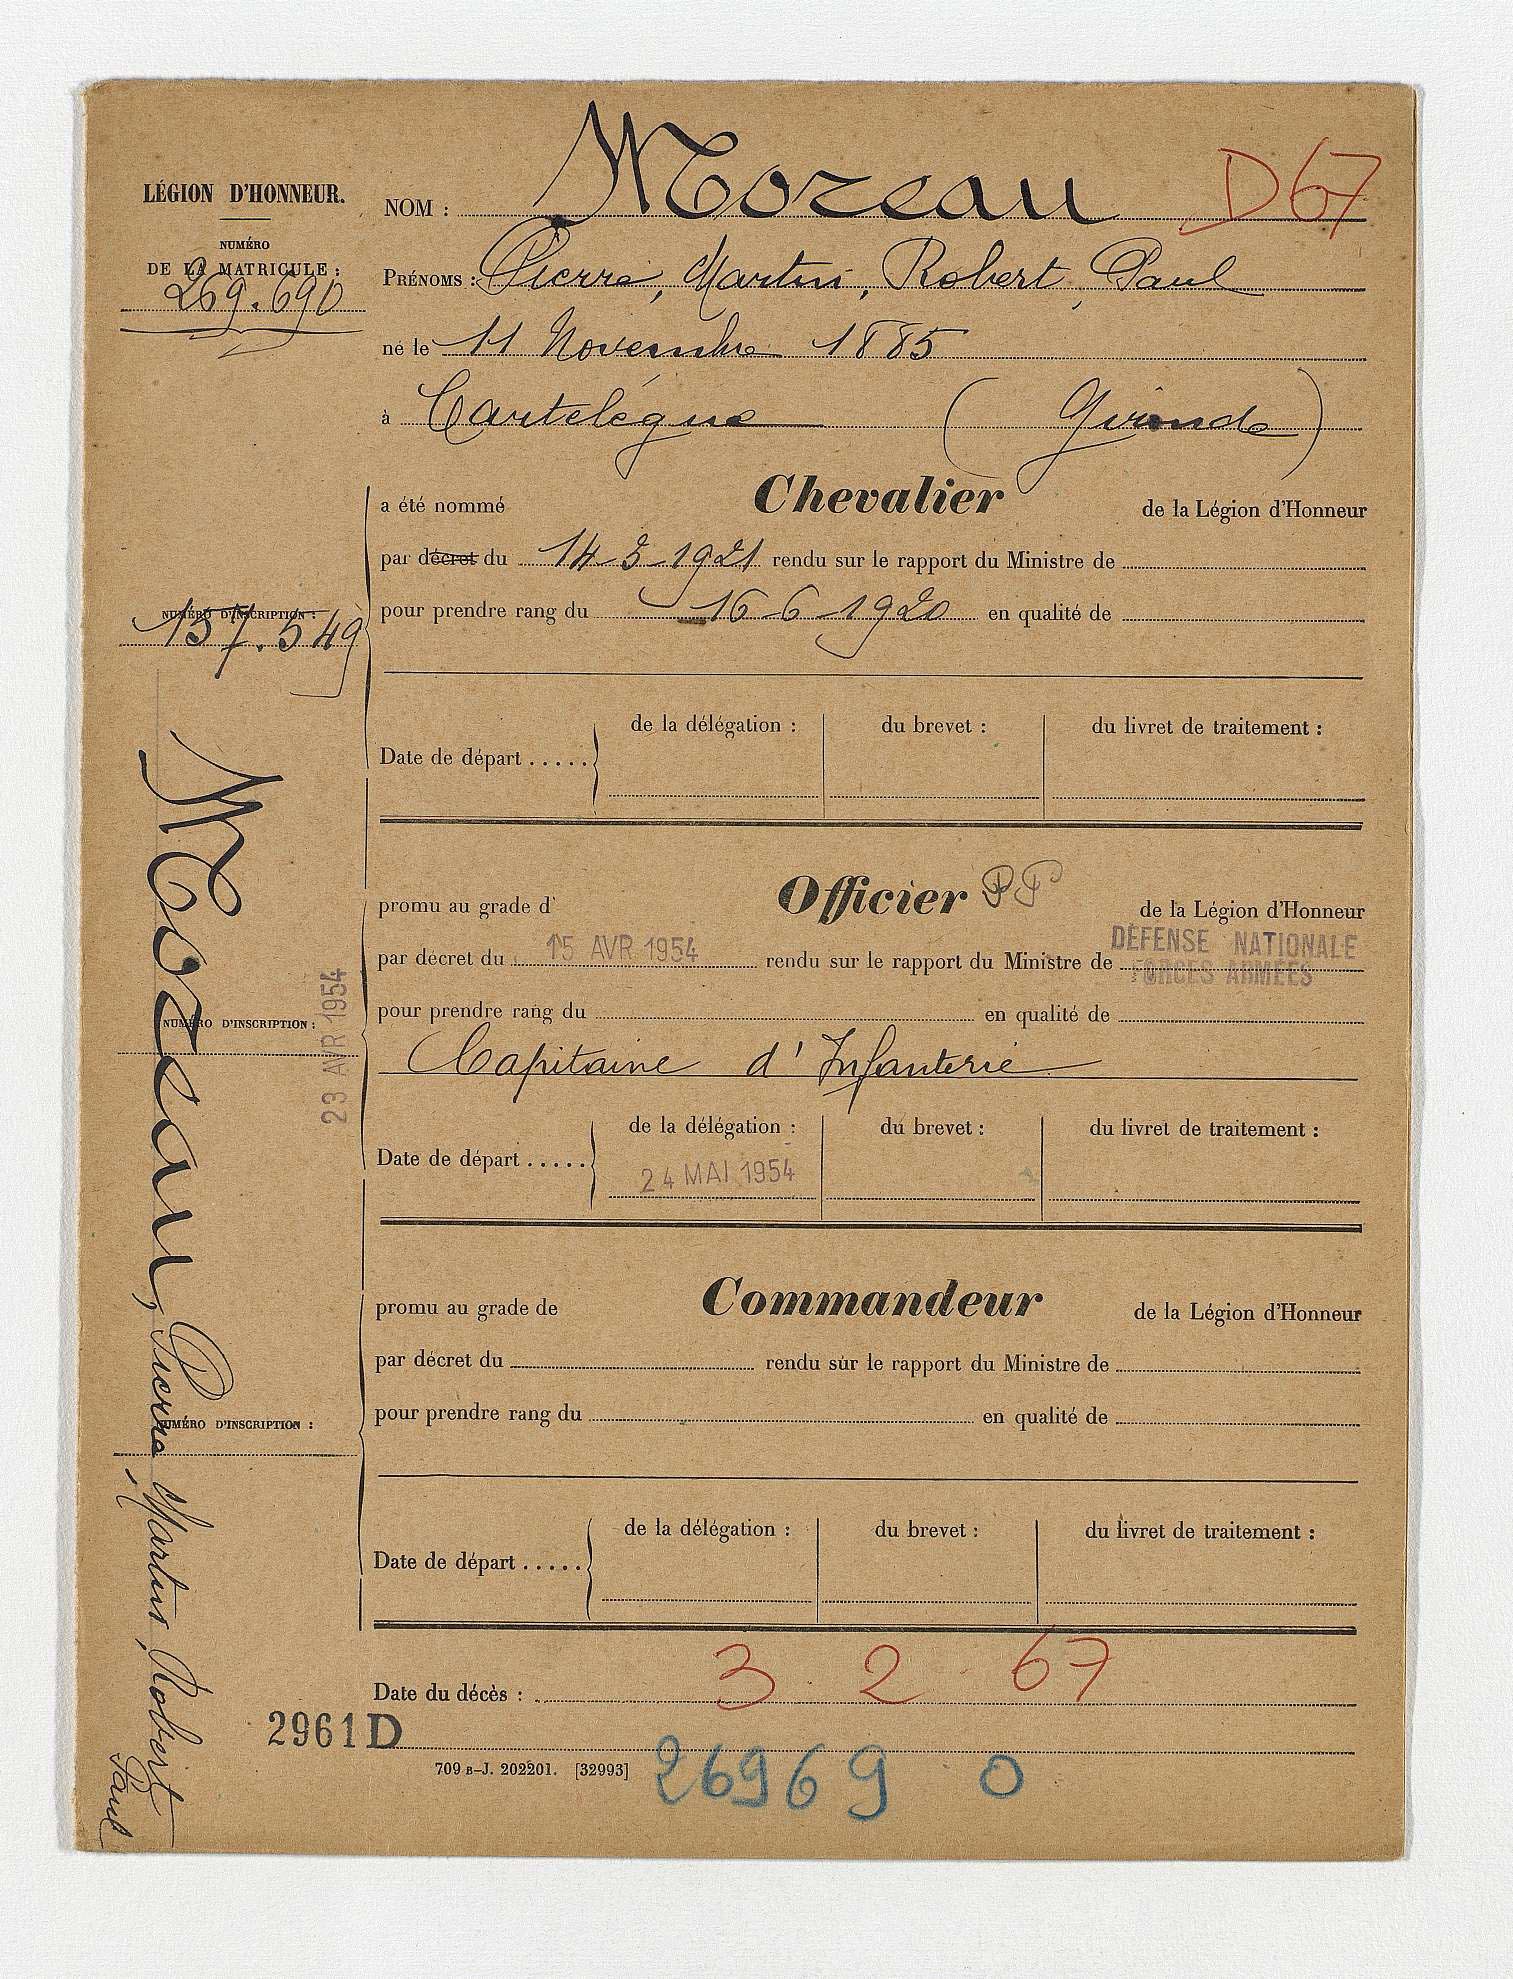 LÉGION D'HONNEUR.
NUMÉRO
DE LA MATRICULE :
269.690
NOM : Moreau D67
PRÉNOMS : Pierre, Martin, Robert, Paul
né le 11 Novembre 1885
à Cartelègue ( Gironde )
a été nommé Chevalier de la Légion d'Honneur
par décret du 14-3-1921 rendu sur le rapport du Ministre de
pour prendre rang du 16-6-1920 en qualité de
NUMÉRO D'INSCRIPTION :
157.549
de la délégation : du brevet : du livret de traitement :
Date de départ .....
promu au grade d' Officier de la Légion d'Honneur
par décret du 15 AVR 1954 rendu sur le rapport du Ministre de DÉFENSE NATIONALE
FORCES ARMÉES
pour prendre rang du en qualité de
NUMÉRO D'INSCRIPTION :
23 AVR 1954
Capitaine d'Infanterie
de la délégation : du brevet : du livret de traitement :
Date de départ ..... 24 MAI 1954
promu au grade de Commandeur de la Légion d'Honneur
par décret du rendu sur le rapport du Ministre de
pour prendre rang du en qualité de
NUMÉRO D'INSCRIPTION :
de la délégation : du brevet : du livret de traitement :
Date de départ .....
Date du décès : 3 2 67
2961D
709 B-J. 202201. [32993]
26969 0
Moreau, Pierre, Martin, Robert
Paul